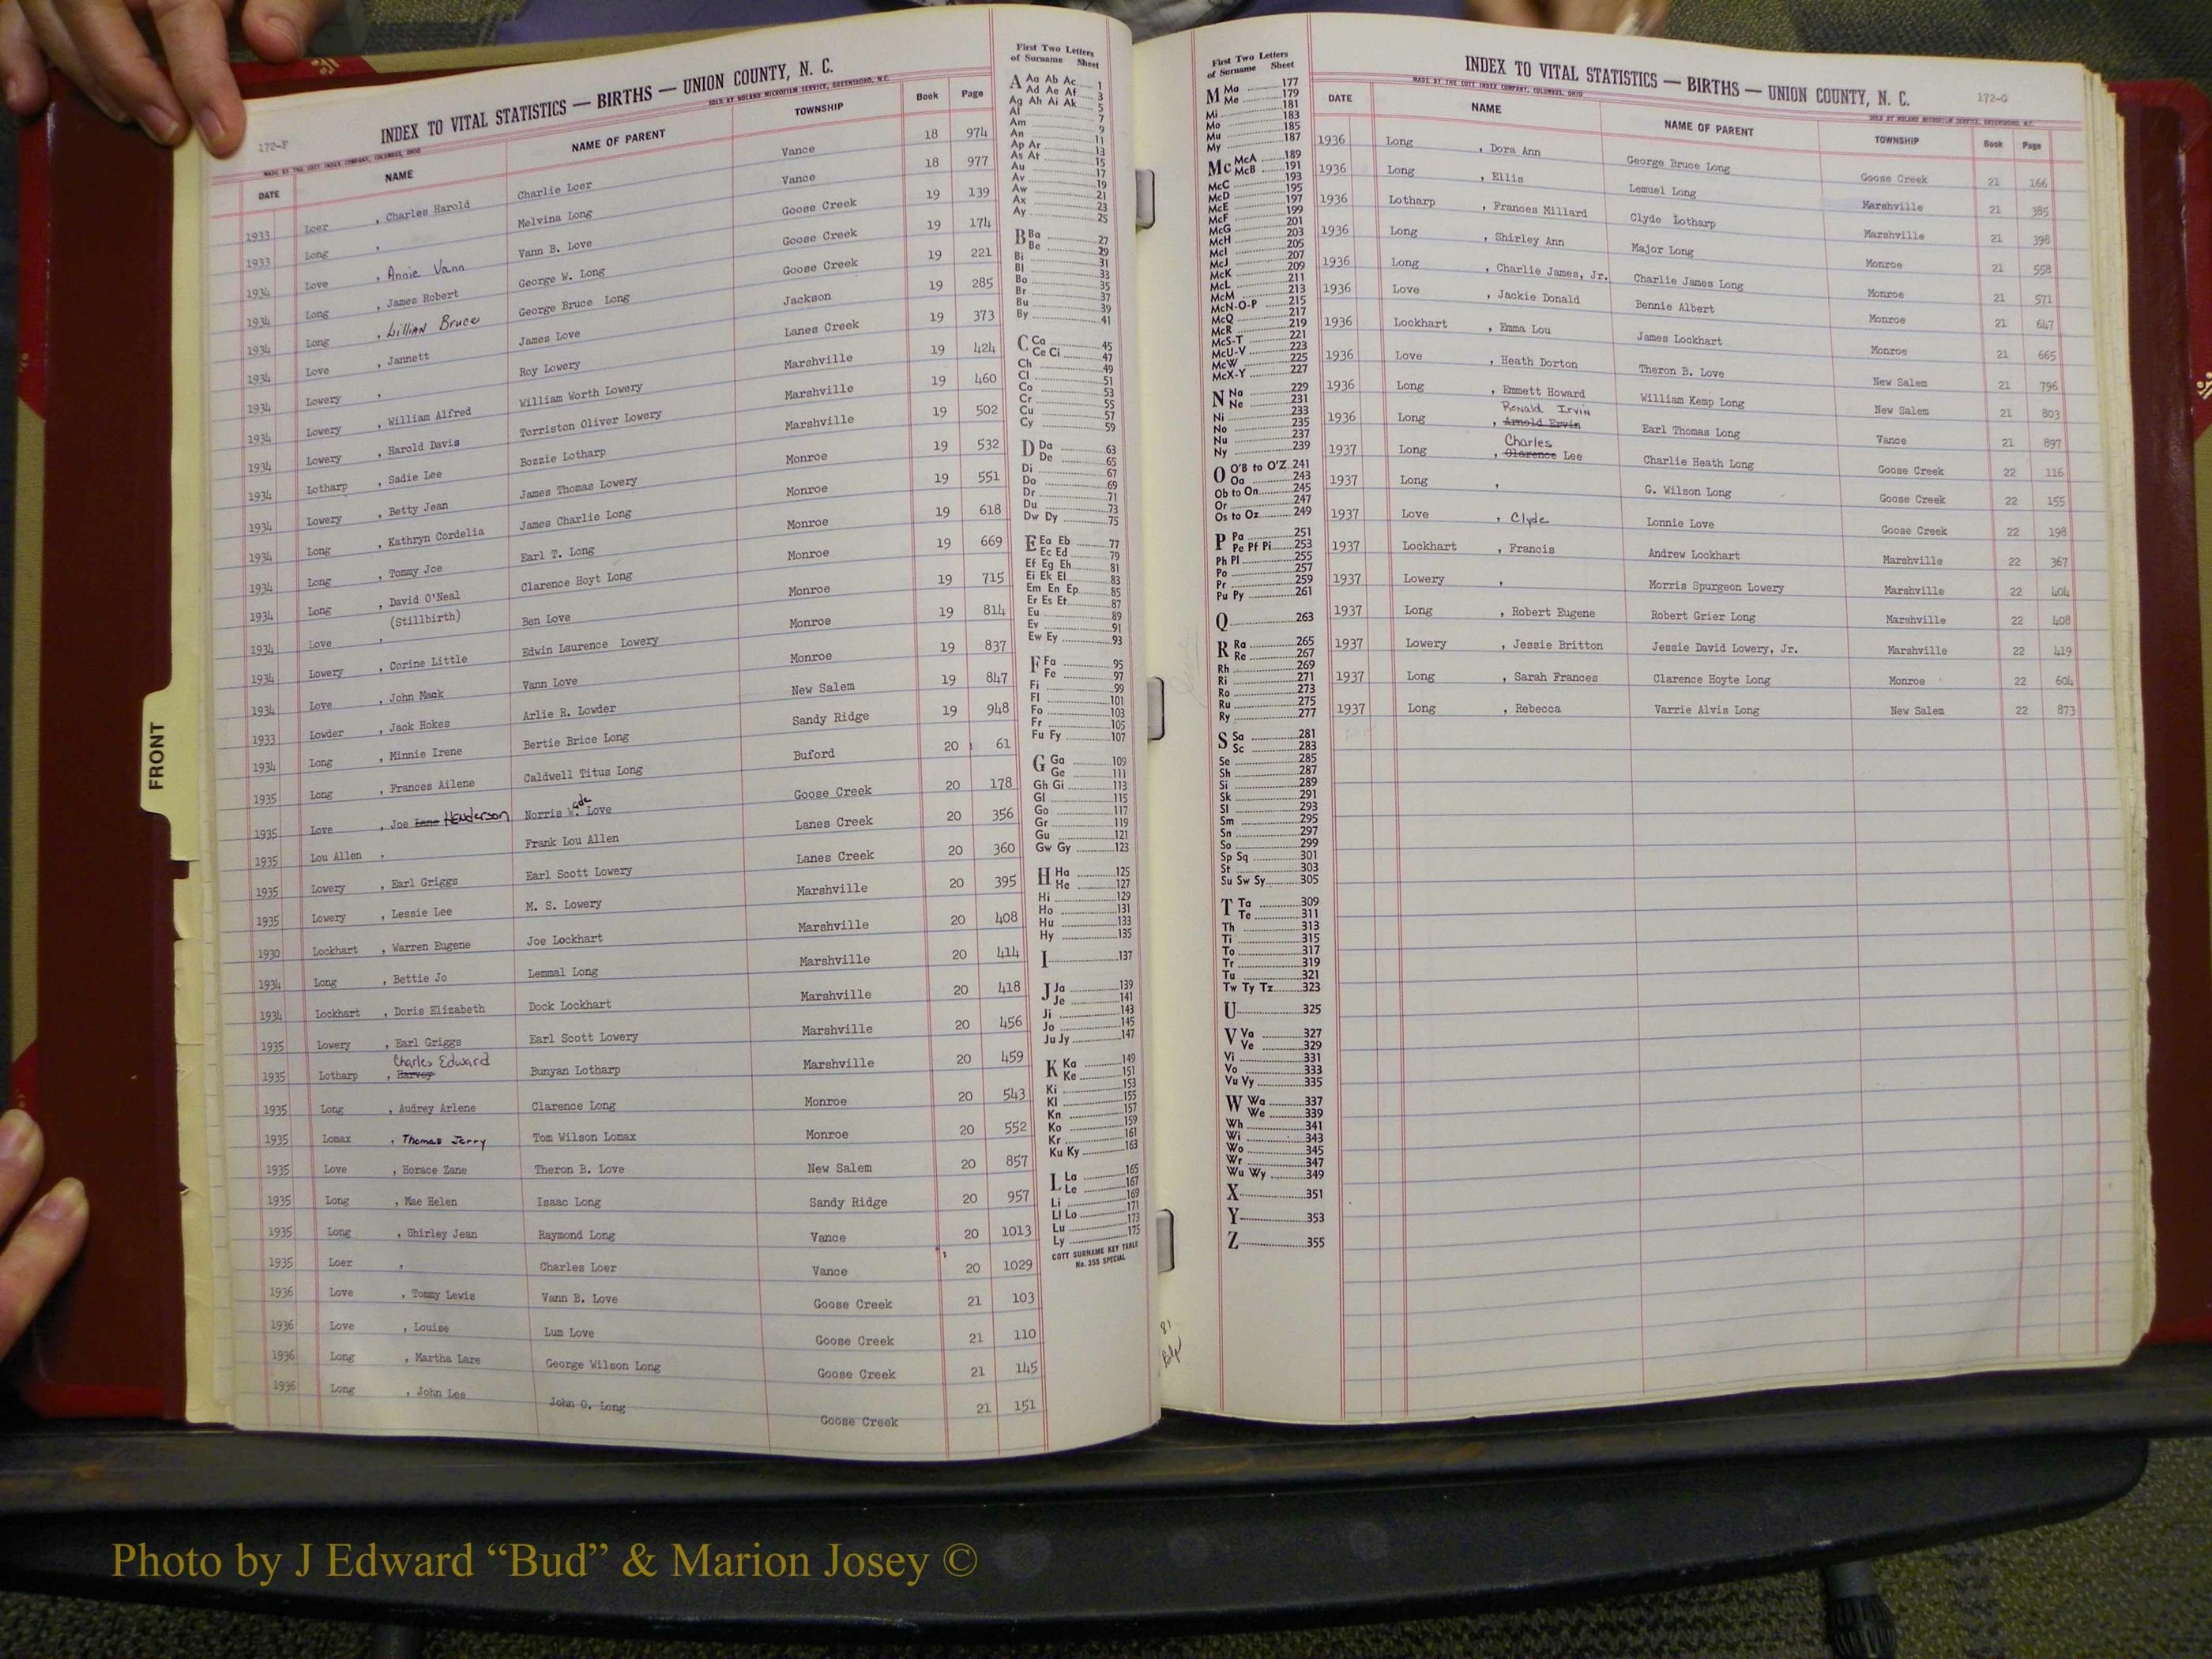 172-F
INDEX TO VITAL STATISTICS — BIRTHS — UNION COUNTY, N. C.
MADE BY THE COTT INDEX COMPANY, COLUMBUS, OHIO SOLD BY NOLAND MICROFILM SERVICE, GREENSBORO, N.C.
DATE NAME NAME OF PARENT TOWNSHIP Book Page
1933 Loer , Charles Harold Charlie Loer Vance 18 974
1933 Long , Melvina Long Vance 18 977
1934 Love , Annie Vann Vann B. Love Goose Creek 19 139
1934 Long , James Robert George W. Long Goose Creek 19 174
1934 Long , Lillian Bruce George Bruce Long Goose Creek 19 221
1934 Love , Jannett James Love Jackson 19 285
1934 Lowery , Roy Lowery Lanes Creek 19 373
1934 Lowery , William Alfred William Worth Lowery Marshville 19 424
1934 Lowery , Harold Davis Torriston Oliver Lowery Marshville 19 460
1934 Lotharp , Sadie Lee Bozzie Lotharp Marshville 19 502
1934 Lowery , Betty Jean James Thomas Lowery Monroe 19 532
1934 Long , Kathryn Cordelia James Charlie Long Monroe 19 551
1934 Long , Tommy Joe Earl T. Long Monroe 19 618
1934 Long , David O'Neal Clarence Hoyt Long Monroe 19 669
(Stillbirth)
1934 Love , Ben Love Monroe 19 715
1934 Lowery , Corine Little Edwin Laurence Lowery Monroe 19 814
1934 Love , John Mack Vann Love Monroe 19 837
1933 Lowder , Jack Hokes Arlie R. Lowder New Salem 19 847
1934 Long , Minnie Irene Bertie Brice Long Sandy Ridge 19 948
1935 Long , Frances Ailene Caldwell Titus Long Buford 20 61
1935 Love , Joe Lane Henderson Norris Wade Love Goose Creek 20 178
1935 Lou Allen , Frank Lou Allen Lanes Creek 20 356
1935 Lowery , Earl Griggs Earl Scott Lowery Lanes Creek 20 360
1935 Lowery , Lessie Lee M. S. Lowery Marshville 20 395
1930 Lockhart , Warren Eugene Joe Lockhart Marshville 20 408
1934 Long , Bettie Jo Lemmal Long Marshville 20 414
1934 Lockhart , Doris Elizabeth Dock Lockhart Marshville 20 418
1935 Lowery , Earl Griggs Earl Scott Lowery Marshville 20 456
Charles Edward
1935 Lotharp , Harvey Bunyan Lotharp Marshville 20 459
1935 Long , Audrey Arlene Clarence Long Monroe 20 543
1935 Lomax , Thomas Jerry Tom Wilson Lomax Monroe 20 552
1935 Love , Horace Zane Theron B. Love New Salem 20 857
1935 Long , Mae Helen Isaac Long Sandy Ridge 20 957
1935 Long , Shirley Jean Raymond Long Vance 20 1013
1935 Loer , Charles Loer Vance 20 1029
1936 Love , Tommy Lewis Vann B. Love Goose Creek 21 103
1936 Love , Louise Lum Love Goose Creek 21 110
1936 Long , Martha Lare George Wilson Long Goose Creek 21 145
1936 Long , John Lee John O. Long Goose Creek 21 151
First Two Letters
of Surname Sheet
A Aa Ab Ac 1
Ad Ae Af 3
Ag Ah Ai Ak 5
Al 7
Am 9
An 11
Ap Ar 13
As At 15
Au 17
Av 19
Aw 21
Ax 23
Ay 25
B Ba 27
Be 29
Bi 31
Bl 33
Bo 35
Br 37
Bu 39
By 41
C Ca 45
Ce Ci 47
Ch 49
Cl 51
Co 53
Cr 55
Cu 57
Cy 59
D Da 63
De 65
Di 67
Do 69
Dr 71
Du 73
Dw Dy 75
E Ea Eb 77
Ec Ed 79
Ef Eg Eh 81
Ei Ek El 83
Em En Ep 85
Er Es Et 87
Eu 89
Ev 91
Ew Ey 93
F Fa 95
Fe 97
Fi 99
Fl 101
Fo 103
Fr 105
Fu Fy 107
G Ga 109
Ge 111
Gh Gi 113
Gl 115
Go 117
Gr 119
Gu 121
Gw Gy 123
H Ha 125
He 127
Hi 129
Ho 131
Hu 133
Hy 135
I 137
J Ja 139
Je 141
Ji 143
Jo 145
Ju Jy 147
K Ka 149
Ke 151
Ki 153
Kl 155
Kn 157
Ko 159
Kr 161
Ku Ky 163
L La 165
Le 167
Li 169
Ll Lo 171
Lu 173
Ly 175
COTT SURNAME KEY TABLE
No. 355 SPECIAL
First Two Letters
of Surname Sheet
M Ma 177
Me 179
Mi 181
Mo 183
Mu 185
My 187
Mc McA 189
McB 191
McC 193
McD 195
McE 197
McF 199
McG 201
McH 203
McI 205
McJ 207
McK 209
McL 211
McM 213
McN-O-P 215
McQ 217
McR 219
McS-T 221
McU-V 223
McW 225
McX-Y 227
N Na 229
Ne 231
Ni 233
No 235
Nu 237
Ny 239
O O'B to O'Z 241
Oa 243
Ob to On 245
Or 247
Os to Oz 249
P Pa 251
Pe Pf Pi 253
Ph Pl 255
Po 257
Pr 259
Pu Py 261
Q 263
R Ra 265
Re 267
Rh 269
Ri 271
Ro 273
Ru 275
Ry 277
S Sa 281
Sc 283
Se 285
Sh 287
Si 289
Sk 291
Sl 293
Sm 295
Sn 297
So 299
Sp Sq 301
St 303
Su Sw Sy 305
T Ta 309
Te 311
Th 313
Ti 315
To 317
Tr 319
Tu 321
Tw Ty Tz 323
U 325
V Va 327
Ve 329
Vi 331
Vo 333
Vu Vy 335
W Wa 337
We 339
Wh 341
Wi 343
Wo 345
Wr 347
Wu Wy 349
X 351
Y 353
Z 355
INDEX TO VITAL STATISTICS — BIRTHS — UNION COUNTY, N. C.
172-G
MADE BY THE COTT INDEX COMPANY, COLUMBUS, OHIO SOLD BY NOLAND MICROFILM SERVICE, GREENSBORO, N.C.
DATE NAME NAME OF PARENT TOWNSHIP Book Page
1936 Long , Dora Ann George Bruce Long Goose Creek 21 166
1936 Long , Ellis Lemuel Long Marshville 21 385
1936 Lotharp , Frances Millard Clyde Lotharp Marshville 21 398
1936 Long , Shirley Ann Major Long Monroe 21 558
1936 Long , Charlie James, Jr. Charlie James Long Monroe 21 571
1936 Love , Jackie Donald Bennie Albert Monroe 21 647
1936 Lockhart , Emma Lou James Lockhart Monroe 21 665
1936 Love , Heath Dorton Theron B. Love New Salem 21 796
1936 Long , Emmett Howard William Kemp Long New Salem 21 803
Ronald Irvin
1936 Long , Arnold Ervin Earl Thomas Long Vance 21 897
Charles
1937 Long , Clarence Lee Charlie Heath Long Goose Creek 22 116
1937 Long , G. Wilson Long Goose Creek 22 155
1937 Love , Clyde Lonnie Love Goose Creek 22 198
1937 Lockhart , Francis Andrew Lockhart Marshville 22 367
1937 Lowery , Morris Spurgeon Lowery Marshville 22 404
1937 Long , Robert Eugene Robert Grier Long Marshville 22 408
1937 Lowery , Jessie Britton Jessie David Lowery, Jr. Marshville 22 419
1937 Long , Sarah Frances Clarence Hoyte Long Monroe 22 604
1937 Long , Rebecca Varrie Alvis Long New Salem 22 873
FRONT
81
Photo by J Edward “Bud” & Marion Josey ©